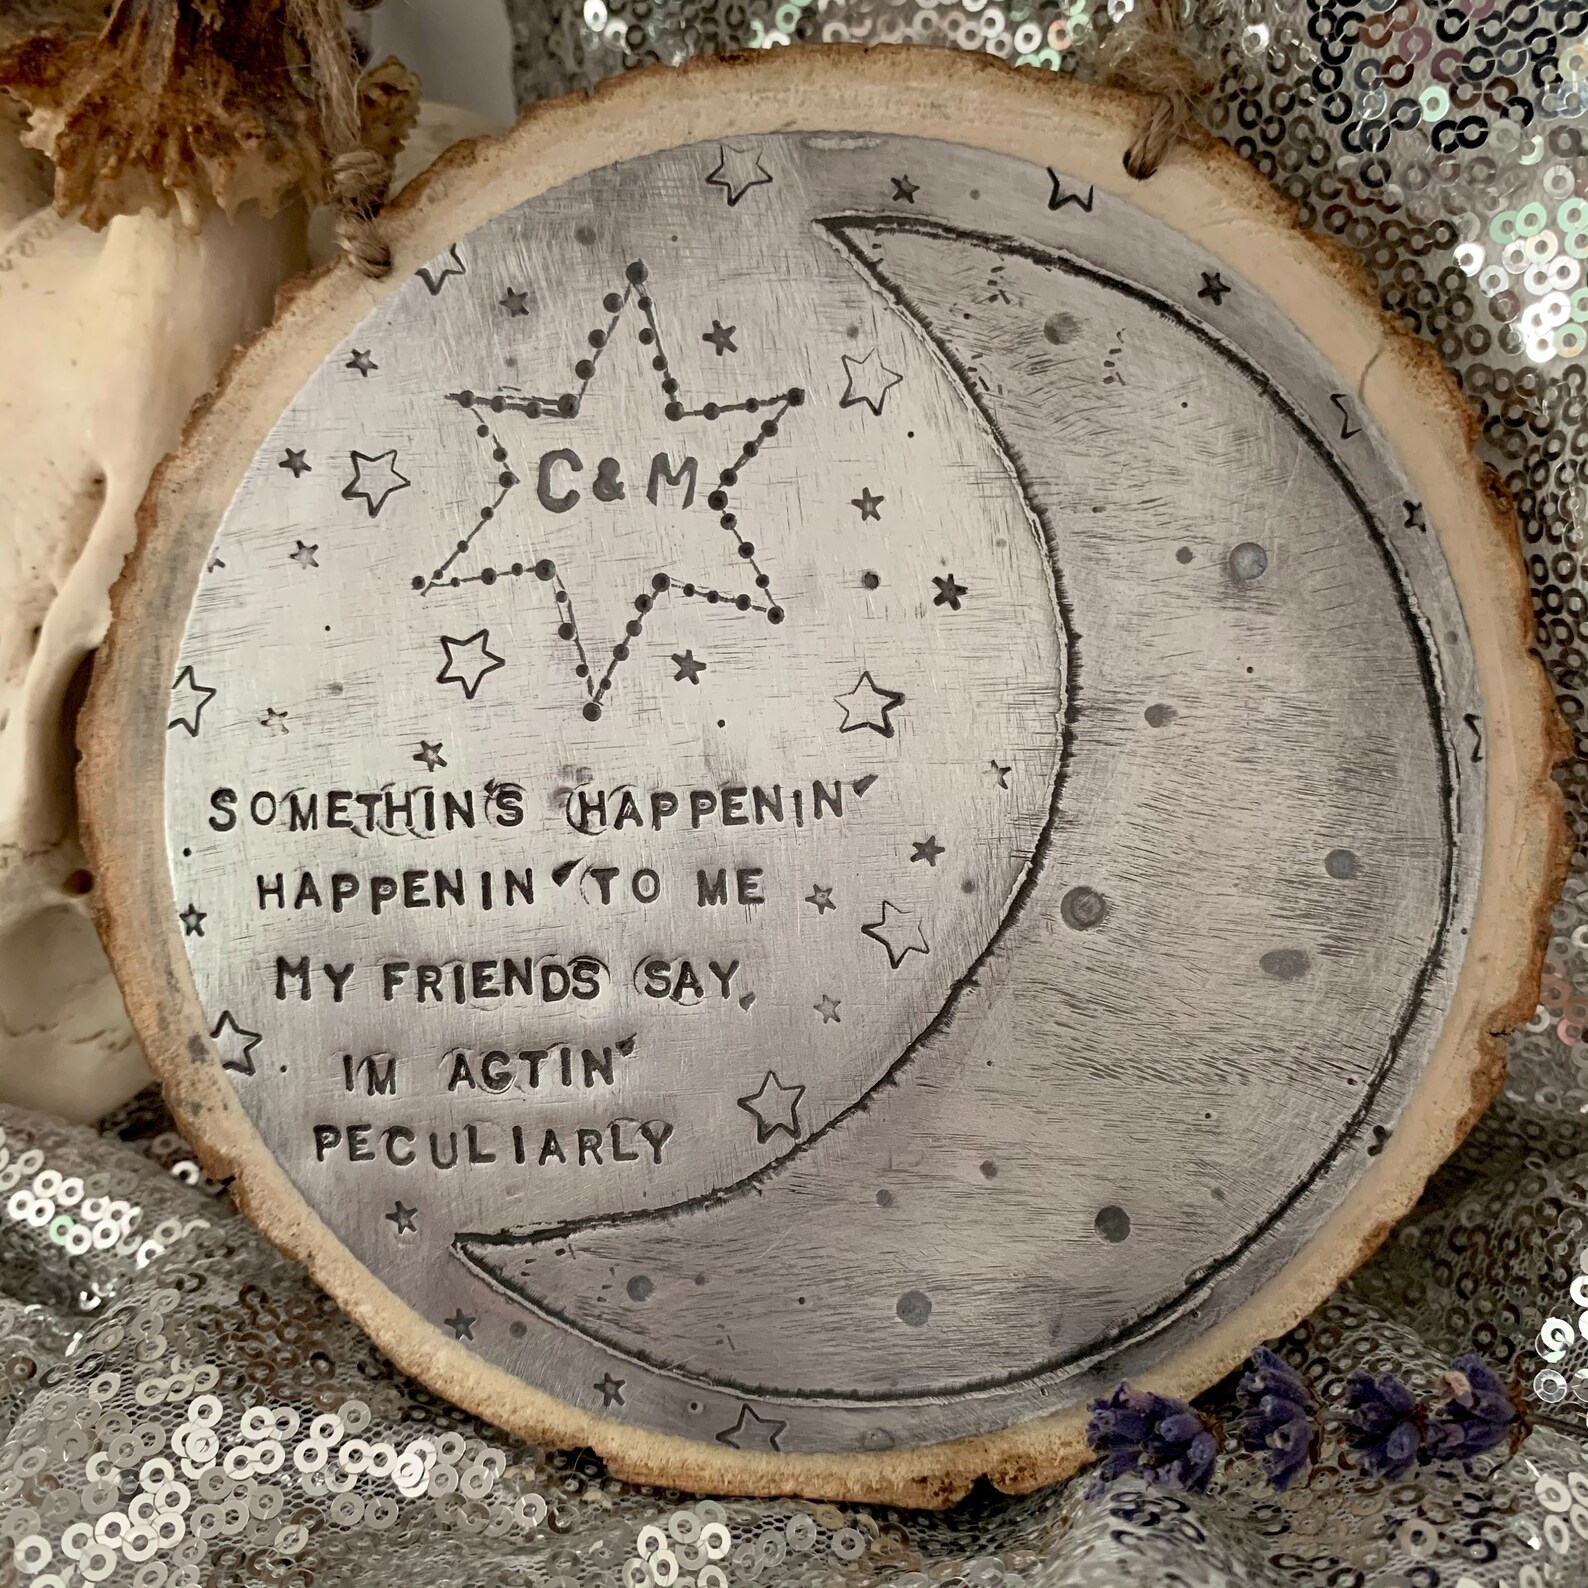 C & M
SOMETHIN'S HAPPENIN'
HAPPENIN' TO ME
MY FRIENDS SAY,
IM ACTIN'
PECULIARLY